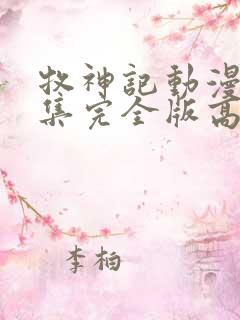 牧神記動漫
集完全版高
李柏